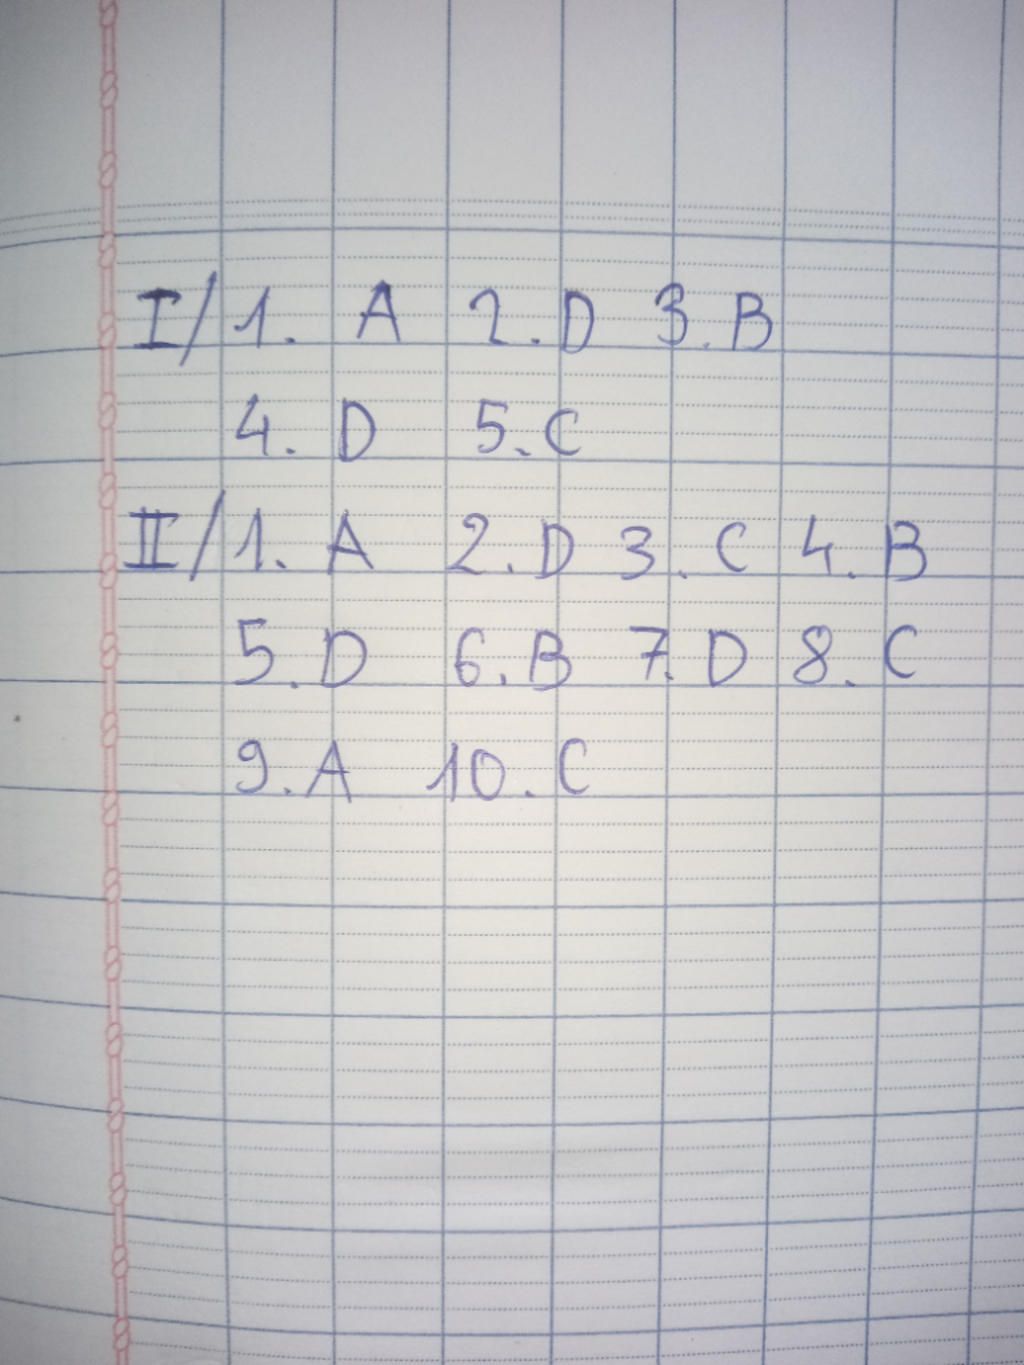 I/ 1. A 2. D 3. B
4. D 5. C
II/ 1. A 2. D 3. C 4. B
5. D 6. B 7. D 8. C
9. A 10. C